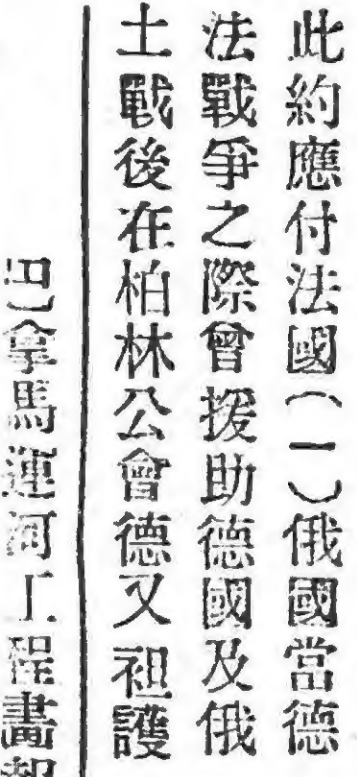 此約應付法國（一）俄國當德
法戰爭之際曾援助德國及俄
土戰後在柏林公會德又袒護
巴拿馬運河工程畫報